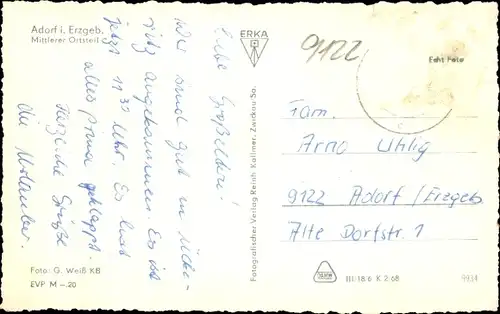 Adorf i. Erzgeb.
Mittlerer Ortsteil
Liebe Großeltern!
Wir sind gut in
angekommen. Es ist
jetzt 11 30 Uhr. Es hat
alles prima geklappt.
Herzliche Grüße
die Urlauber.
Foto: G. Weiß KB
EVP M -.20
ERKA
Fotografischer Verlag Reinh. Kallmer, Zwickau-Sa.
9122
Echt Foto
Fam.
Arno Uhlig
9122 Adorf / Erzgeb
Alte Dorfstr. 1
III-18-6 K 2-68
9934